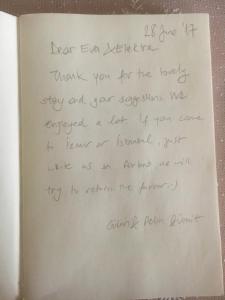 28 June '17
Dear Eva & Elektra
Thank you for the lovely
stay and your suggestions. We
enjoyed a lot. If you come
to Izmir or Istanbul, just
write us on Airbnb, we will
try to return the favour :)